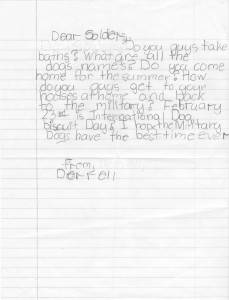 Dear Solders,
Do you guys take
baths? What are all the
dogs names? Do you come
home for the summer? How
do you guys get to your
houses at home and back
to the military? February
23rd is International Dog
Biscuit Day! I hope the Military
Dogs have the best time ever
From,